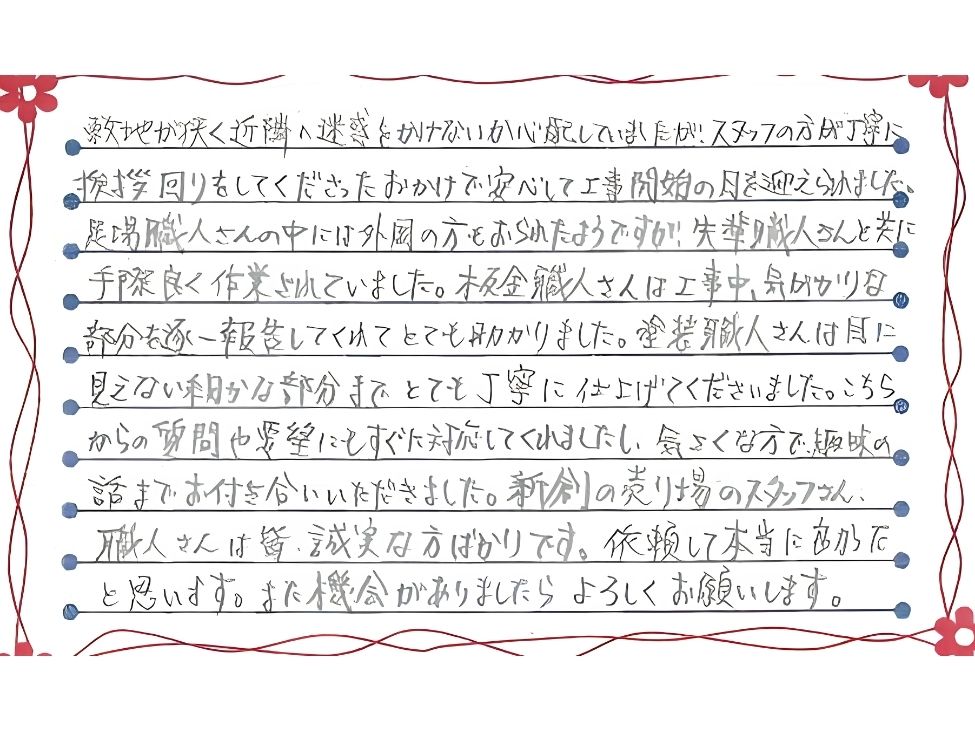 敷地が狭く近隣へ迷惑をかけないか心配していましたが、スタッフの方が丁寧に
挨拶回りをしてくださったおかげで安心して工事開始の日を迎えられました。
足場職人さんの中には外国の方もおられたようですが、先輩職人さんと共に
手際良く作業されていました。板金職人さんは工事中、気がかりな
部分を逐一報告してくれてとても助かりました。塗装職人さんは目に
見えない細かな部分までとても丁寧に仕上げてくださいました。こちら
からの質問や要望にもすぐに対応してくれましたし、気さくな方で趣味の
話までお付き合いいただきました。新創の売り場のスタッフさん、
職人さんは皆、誠実な方ばかりです。依頼して本当に良かった
と思います。また機会がありましたらよろしくお願いします。